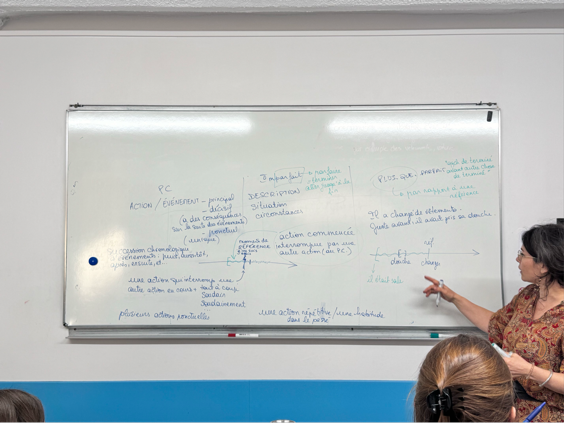 PC
ACTION / ÉVÉNEMENT - principal
- décisif
(a des conséquences
sur la suite des événements)
- ponctuel
(unique)
succession chronologique
d'événements: puis,
ensuite, et
une action qui interrompt une
autre action en cours = tout à coup
Soudain
Soudainement
plusieurs actions ponctuelles
Imparfait
DESCRIPTION
Situation
circonstances
moment de
référence
action commencée
interrompue par une
autre action (au PC.)
une action répétitive / une habitude
dans le passé
PLUS-QUE-PARFAIT
par rapport à une
référence
Il a changé de vêtements.
avant, il avait pris sa douche.
ref
douche change
il était sale